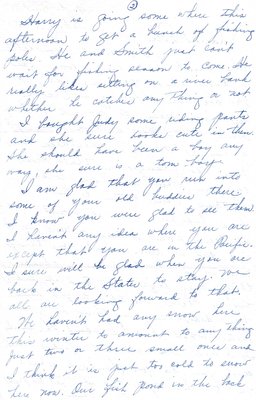 ②
Harry is going some where this
afternoon to get a bunch of fishing
poles. He and Smith just can't
wait for fishing season to come. He
really likes sitting on a river bank
whether he catches any thing or not
I bought Judy some riding pants
and she sure looks cute in them.
She should have been a boy any
way, she sure is a tom boy.
I am glad that you run into
some of your old buddies there.
I know you were glad to see them.
I haven't any idea where you are
except that you are in the Pacific.
I sure will be glad when you are
back in the States to stay. We
all are looking forward to that.
We haven't had any snow here
this winter to amount to any thing
just two or three small ones and
I think it is just too cold to snow
here now. Our fish pond in the back